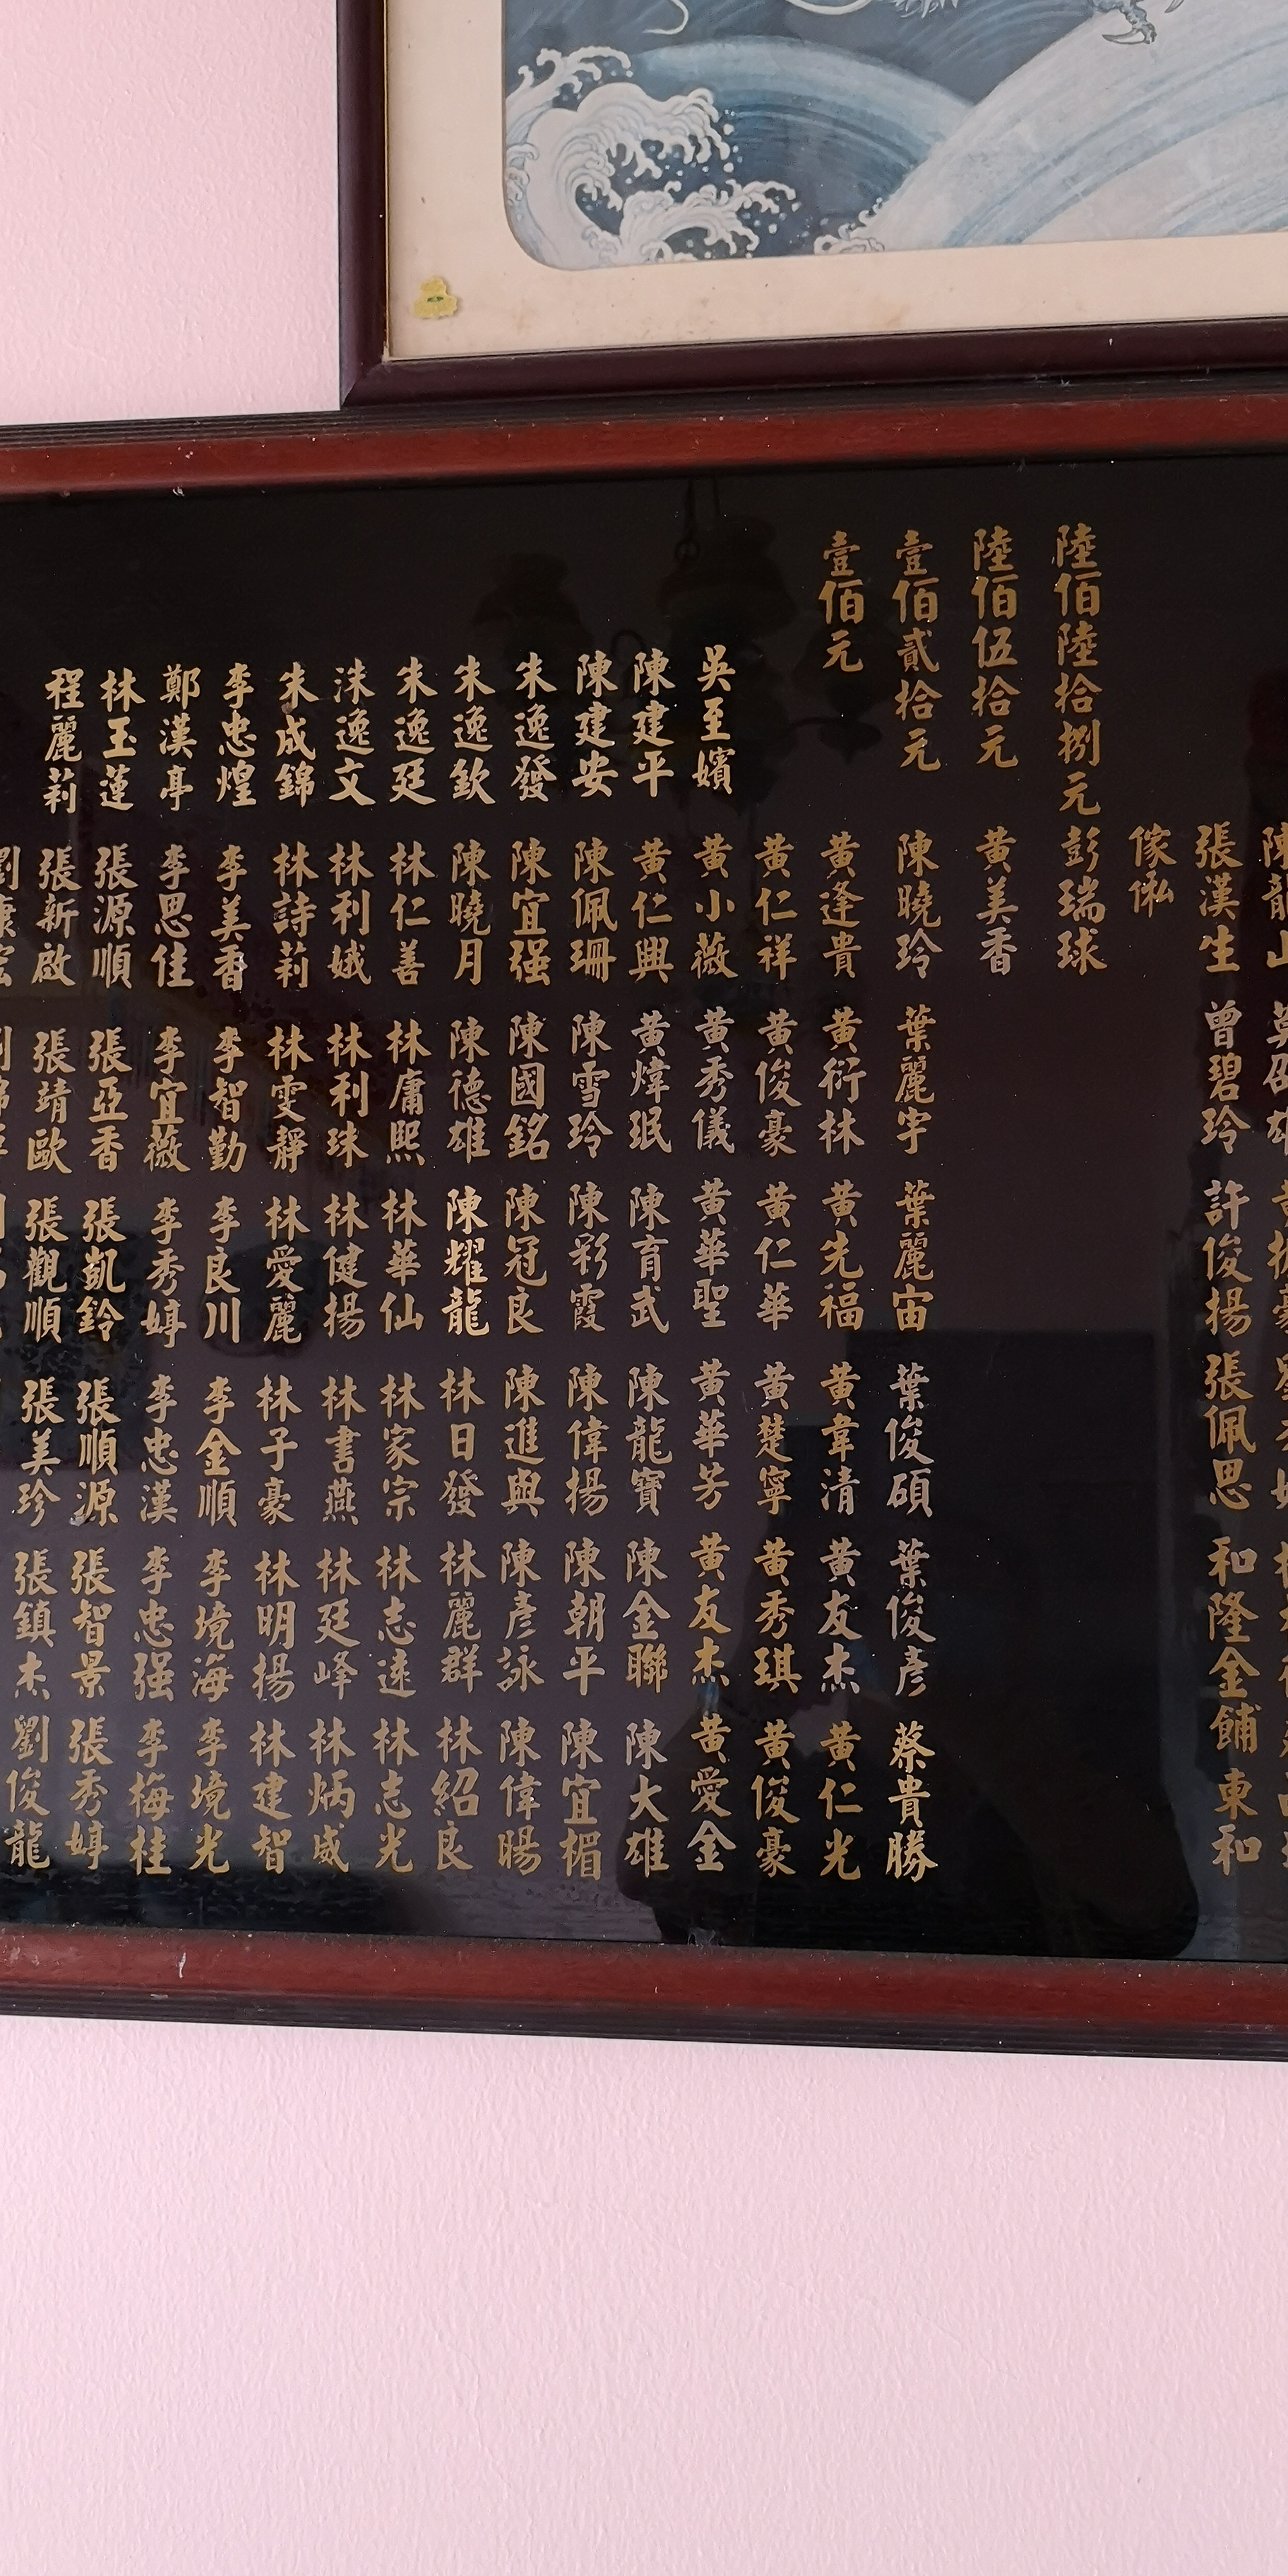 張漢生 曾碧玲 許俊揚 張佩思 和隆金餔 東和
傢俬
陸佰陸拾捌元 彭瑞球
陸佰伍拾元 黃美香
壹佰貳拾元 陳曉玲 葉麗宇 葉麗宙 葉俊碩 葉俊彥 蔡貴勝
壹佰元 黃逢貴 黃衍林 黃先福 黃韋清 黃友杰 黃仁光
黃仁祥 黃俊豪 黃仁華 黃楚寧 黃秀琪 黃俊豪
吳至嬪 黃小薇 黃秀儀 黃華聖 黃華芳 黃友杰 黃愛金
陳建平 黃仁興 黃煒珉 陳育武 陳龍寶 陳金聯 陳大雄
陳建安 陳佩珊 陳雪玲 陳彩霞 陳偉揚 陳朝平 陳宜楣
朱逸發 陳宜强 陳國銘 陳冠良 陳進興 陳彥詠 陳偉暘
朱逸欽 陳曉月 陳德雄 陳耀龍 林日發 林麗群 林紹良
朱逸廷 林仁善 林庸熙 林華仙 林家宗 林志遠 林志光
洙逸文 林利娥 林利珠 林健揚 林書燕 林廷峰 林炳威
朱成錦 林詩莉 林雯靜 林愛麗 林子豪 林明揚 林建智
李忠煌 李美香 李智勤 李良川 李金順 李境海 李境光
鄭漢亭 李思佳 李宜薇 李秀婷 李忠漢 李忠强 李梅桂
林玉蓮 張源順 張亞香 張凱鈴 張順源 張智景 張秀婷
程麗莉 張新啟 張靖歐 張觀順 張美珍 張鎮杰 劉俊龍